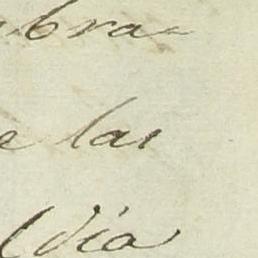 bra
las
dia